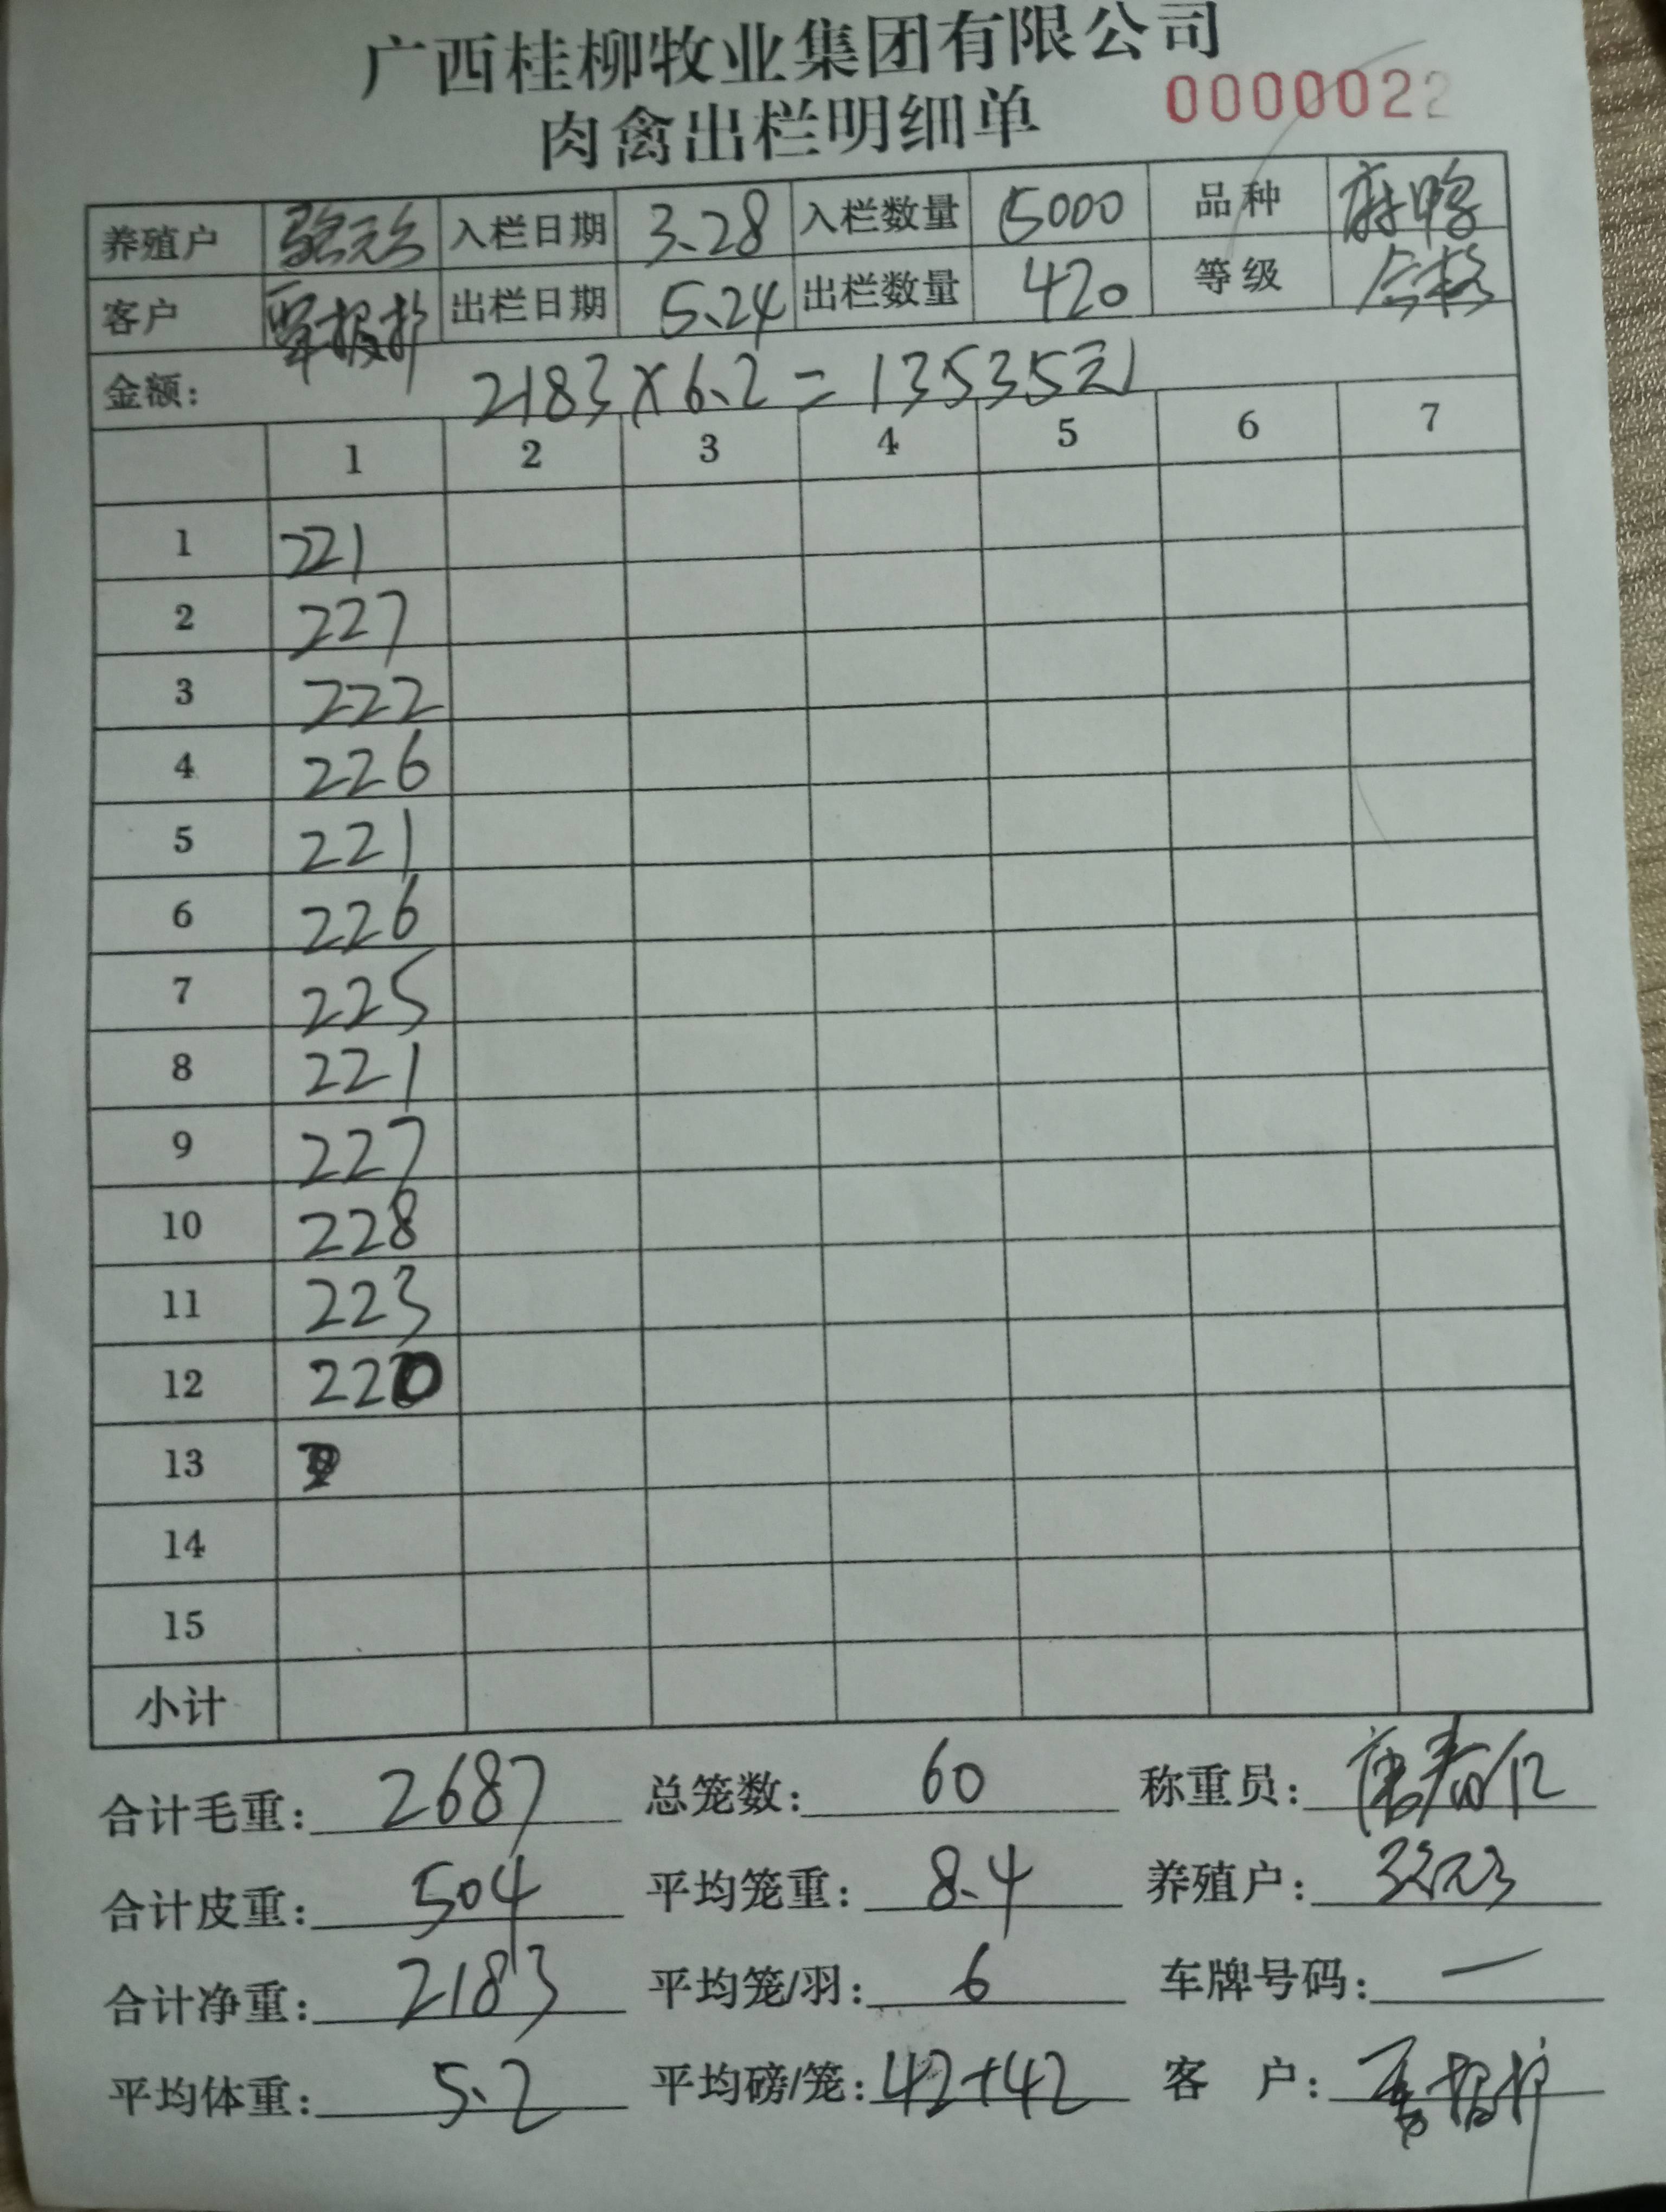 广西桂柳牧业集团有限公司
肉禽出栏明细单 0000022
养殖户 入栏日期 3.28 入栏数量 5000 品种 麻鸭
客户 覃振护 出栏日期 5.24 出栏数量 420 等级 合格
金额: 2183×6.2=13535元
1 2 3 4 5 6 7
1 221
2 227
3 222
4 226
5 221
6 226
7 225
8 221
9 227
10 228
11 223
12 220
13
14
15
小计
合计毛重: 2687 总笼数: 60 称重员:
合计皮重: 504 平均笼重: 8.4 养殖户:
合计净重: 2183 平均笼/羽: 6 车牌号码: 一
平均体重: 5.2 平均磅/笼: 42+42 客 户: